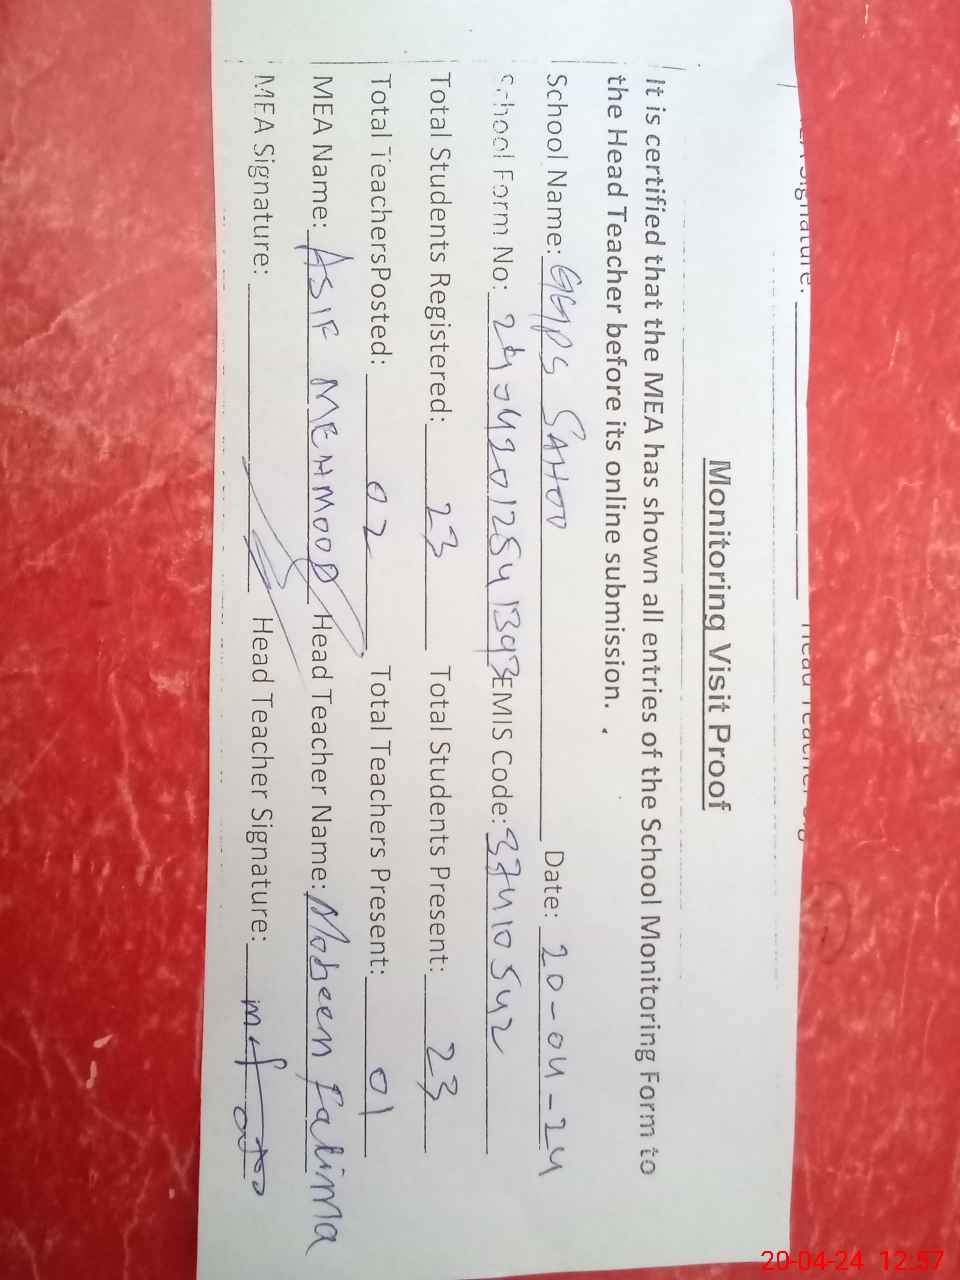 Monitoring Visit Proof
It is certified that the MEA has shown all entries of the School Monitoring Form to
the Head Teacher before its online submission.
School Name: GGPS SAHOO Date: 20-04-24
School Form No: EMIS Code: 37410542
Total Students Registered: 23 Total Students Present: 23
Total TeachersPosted: 02 Total Teachers Present: 01
MEA Name: ASIF MEHMOOD Head Teacher Name: Mobeen Fatima
MEA Signature: Head Teacher Signature:
20-04-24 12:57